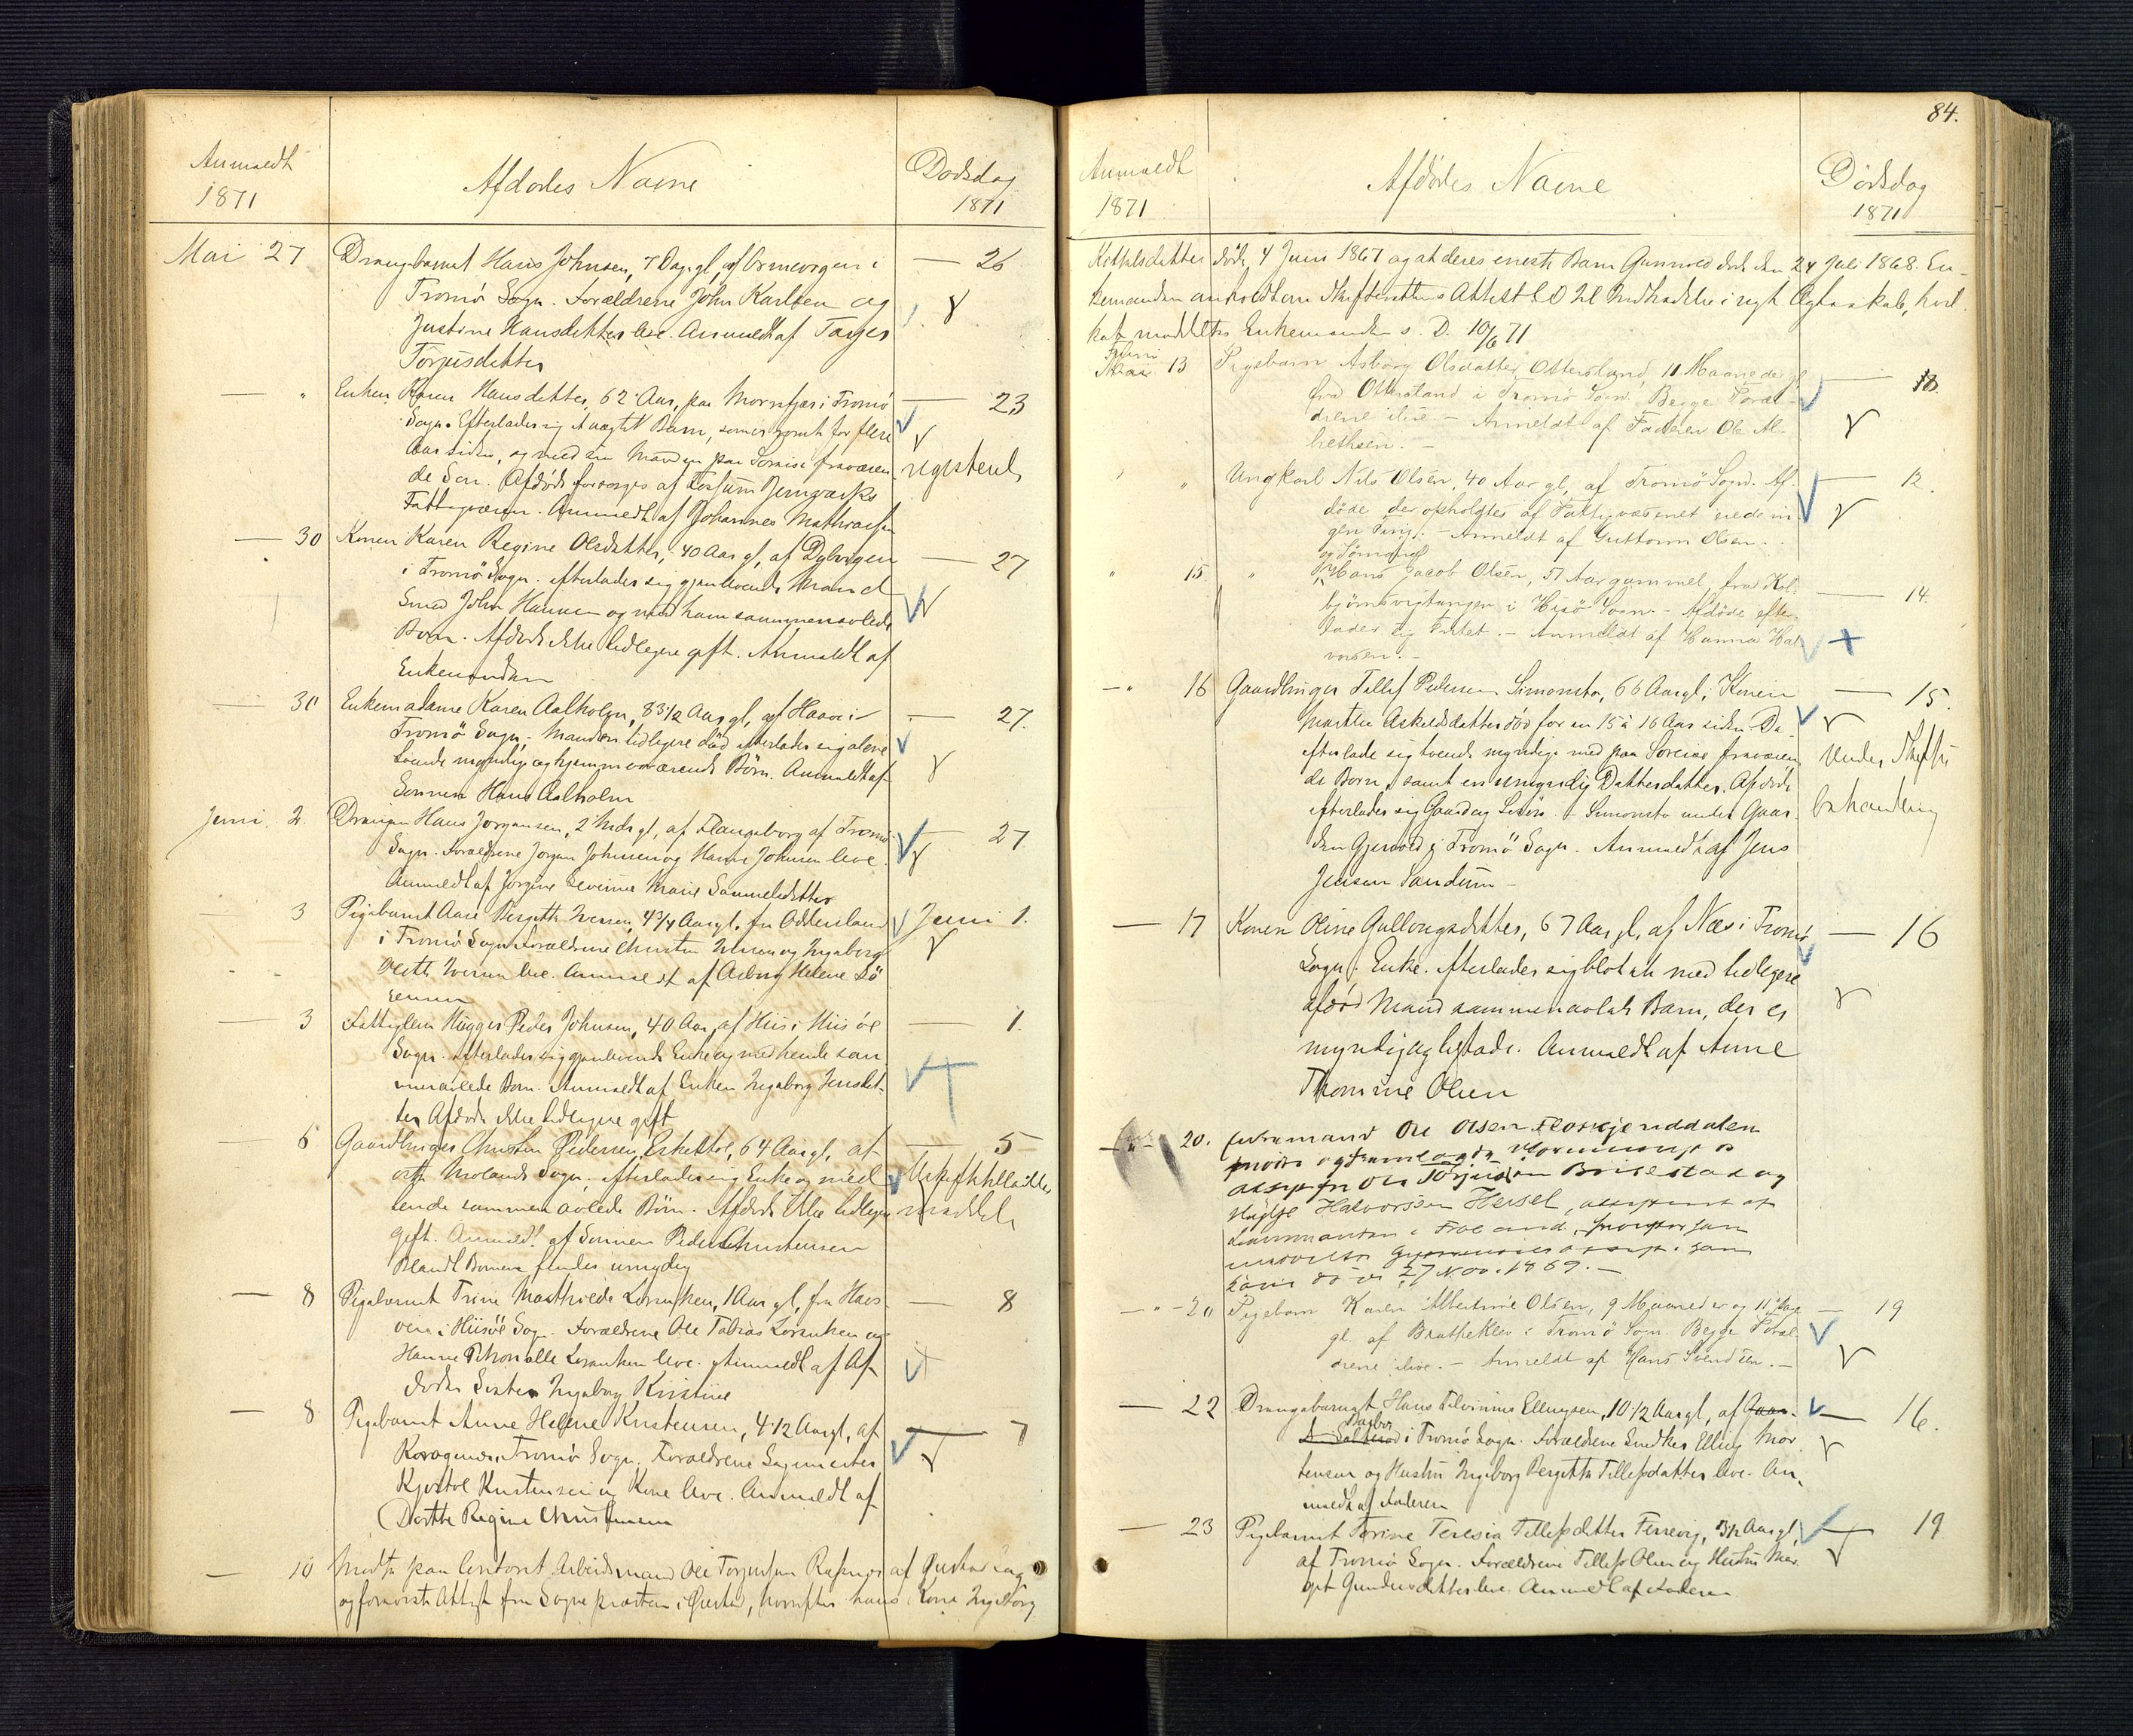 Anmeldt
1871
Afdødes Navne
Dødsdag
1871
Mai 27 Drengebarnet Hans Johnsen, 7 Dage gl, af i — 26
Tromø Sogn. Forældrene John Karlsen og
Justine Hansdatter leve. Anmeldt af Tarjer
Torjusdatter
— " Enken Karen Hansdatter, 62 Aar, paa i Tromø — 23
Sogn. Efterlader sig et Barn, som er for flere
Aar siden, og med sin Mand paa fraværen-
registeret
de Søn. Afdøde forsørges af Jernværks
Fattigvæsen. Anmeldt af Johannes Mathiasen
— 30 Konen Karen Regine Olsdatter, 40 Aar gl, af Dybvigen — 27
i Tromø Sogn. efterlader sig gjenlevende Mand
Smed John Hansen og med ham sammenavlede
Børn. Afdøde ikke tidligere gift. Anmeldt af
Enkemanden
— 30 Enkemadame Karen Aalholm, 83 1/2 Aar gl, af Haave i — 27.
Tromø Sogn. Manden tidligere død efterlader sig alene
myndige og hjemmeværende Børn. Anmeldt af
Sønnen Hans Aalholm
Juni 2. Drengen Hans Jørgensen, 2 Mdr gl, af Flangeborg af Tromø — 27
Sogn. Forældrene Jørgen Johnsen og Hanne Johnsen leve.
Anmeldt af Jørgine Severine Marie Samuelsdatter
— 3 Pigebarnet Aase Bergitte Iversen, 4 3/4 Aar gl, fra Oddersland Juni 1.
i Tromø Sogn. Forældrene Christen Iversen og Ingeborg
Iversen leve. Anmeldt af Asborg Helene Sø
rensen
— 3 Fattiglem Peder Johnsen, 40 Aar, af Hiis i Hiisøe — 1.
Sogn. efterlader sig gjenlevende Enke og med hende sam
menavlede Børn. Anmeldt af Enken Ingeborg Jensdat-
ter Afdøde ikke tidligere gift
— 6 Gaardbruger Christen Pedersen Eskettvet, 64 Aar gl, af — 5
østre Molands Sogn. efterlader sig Enke og med
hende sammen avlede Børn. Afdøde ikke tidligere meddelt
gift. Anmeldt af Sønnen Peder Christensen
Blandt Børnene findes umyndig
— 8 Pigebarnet Trine Mathilde Lorentzen, 1 Aar gl, fra Hav- — 8
i Hiisøe Sogn. Forældrene Ole Tobias Lorentzen og
Hanne Petronelle Lorentzen leve. Anmeldt af Af-
dødes Søster Ingeborg Kristine
— 8 Pigebarnet Anne Helene Kristensen, 4 1/2 Aar gl, af — 7
Tromø Sogn. Forældrene Sagmester
Kristensen og Kone leve. Anmeldt af
Dorthe Regine Christensen
— 10 Mødte paa Contoret Arbeidsmand Ole Torjussen af Øiestad Sogn
og foreviste Attest fra Sognepræsten i Øiestad, hvorefter hans Kone Ingeborg
84.
Anmeldt
1871
Afdødes Navne
Dødsdag
1871
Kittilsdatter døde 4 Juni 1867 og at deres eneste Barn Gunvold døde den 24 Juli 1868. En-
kemanden anmodede om Skifterettens Attest til Indtrædelse i nyt Ægteskab, hvil-
ket meddeltes Enkemanden s. D. 10/6 71
Juni 13 Pigebarn Asborg Olsdatter Otterstand, 11 Maaneder gl
fra Otterstand i Tromø Sogn. Begge Foræl-
drene ilive. — Anmeldt af Faderen Ole Al-
bretsen. —
" Ungkarl Nils Olsen, 40 Aar gl, af Tromø Sogn. Af- — 12.
døde, der opholdtes af Fattigvæsenet eiede in
gen Ting. — Anmeldt af Guttorm Olsen.
og Sømand
" 15 " Hans Jacob Olsen, 51 Aar gammel, fra Kol- — 14.
bjørnsvigtangen i Hisø Sogn. — Afdøde efter-
lader sig Intet. — Anmeldt af Hanna Hal
vorsen. —
— " 16 Gaardbruger Tellef Pedersen Simonstø, 66 Aar gl; Konen — 15.
Marthe Askildsdatter død for en 15 à 16 Aar siden. De
efterlade sig myndige med paa Søreise fraværen
de Børn, samt en umyndig Datterdatter. Afdøde
Under Skifte
behandling
efterlader sig Gaard og Løsøre. Simonstø under Gaar-
den Gjervold i Tromø Sogn. Anmeldt af Jens
Jensen Sandum —
— 17 Konen Oline Gullovgsdatter, 67 Aar gl, af Næs i Tromø — 16
Sogn. Enke. efterlader sig blot et med tidligere
afdød Mand sammenavlet Barn, der er
myndig og tilstede. Anmeldt af Anne
Thomine Olsen
— " 20. Enkemand Ole Olsen
Ole Torjussen Bøilestad og
Halvorssen Heisel,
Lensmanden i Froland,
27 Nov. 1869. —
— " — 20 Pigebarn Karen Albertine Olsen, 9 Maaneder og 11 Dage — 19
gl. af Bratteklev i Tromø Sogn. Begge Foræl-
drene ilive. — Anmeldt af Hans Svendsen. —
— 22 Drengebarnet Hans Elvinius Ellingsen, 10 1/2 Aar gl, af Gaar- — 16.
i Tromø Sogn. Forældrene Snedker Elling Mor
tensen og Hustru Ingeborg Bergitte Tellefsdatter leve. An-
meldt af Faderen
— 23 Pigebarnet Torine Teresia Tellefsdatter Færvig, 3 1/2 Aar gl, — 19
af Tromø Sogn. Forældrene Tellef Olsen og Hustru Mar
get Gundersdatter leve. Anmeldt af Faderen